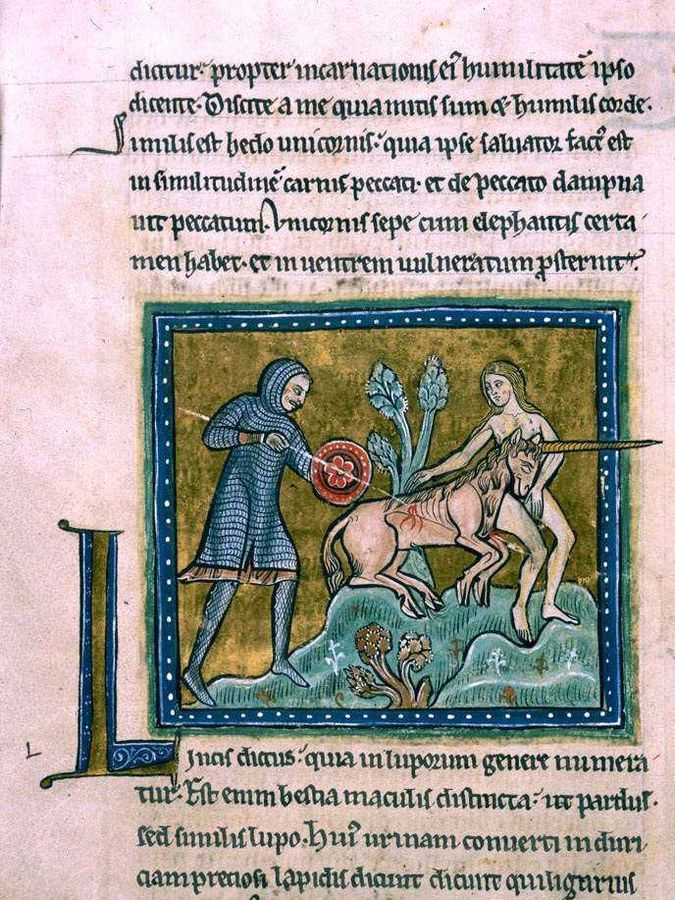 dicitur· propter incarnationis ei᾽ humilitatē ipso
dicente· Discite a me quia mitis sum & humilis corde·
Similis est hedo unicornis· quia ipse saluator fact᾽ est
in similitudinē carnis peccati· et de peccato dampna
uit peccatum. Vnicornis sepe cum elephantis certa
men habet· et in uentrem uulneratum ꝓsternit·
L
Lincis dictus· quia in luporum genere numera
tur· Est enim bestia maculis distincta· ut pardus·
sed similis lupo· Hui᾽ urinam conuerti in duri
ciam preciosi lapidis dicunt dicunt qui ligurius